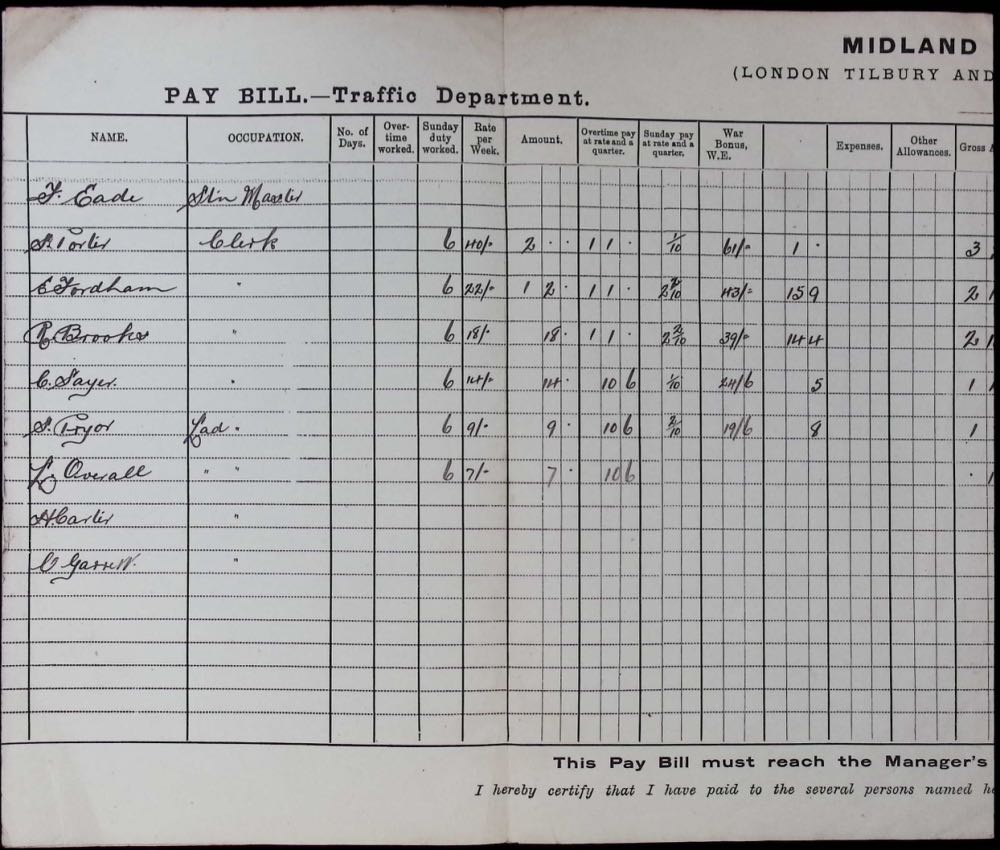 MIDLAND
(LONDON TILBURY AND
PAY BILL.—Traffic Department.
NAME. OCCUPATION. No. of Days. Over-time worked. Sunday duty worked. Rate per Week. Amount. Overtime pay at rate and a quarter. Sunday pay at rate and a quarter. War Bonus, W.E. Expenses. Other Allowances. Gross A
F. Eade Stn Master
S. Porter Clerk 6 40/- 2 · · 1 1 · 1/10 61/- 1 · 3
E Fordham " 6 22/- 1 2 · 1 1 · 2 2/10 43/- 15 9 2 1
R. Brooks " 6 18/- 18 · 1 1 · 2 2/10 39/- 14 4 2 1
C. Sayer. " 6 14/- 14 · 10 6 1/10 24/6 5 1 1
S. Pryor Lad " 6 9/- 9 · 10 6 2/10 19/6 8 1
Overall " " 6 7/- 7 · 10 6 · 1
H Carter "
C Garrett. "
This Pay Bill must reach the Manager's
I hereby certify that I have paid to the several persons named he